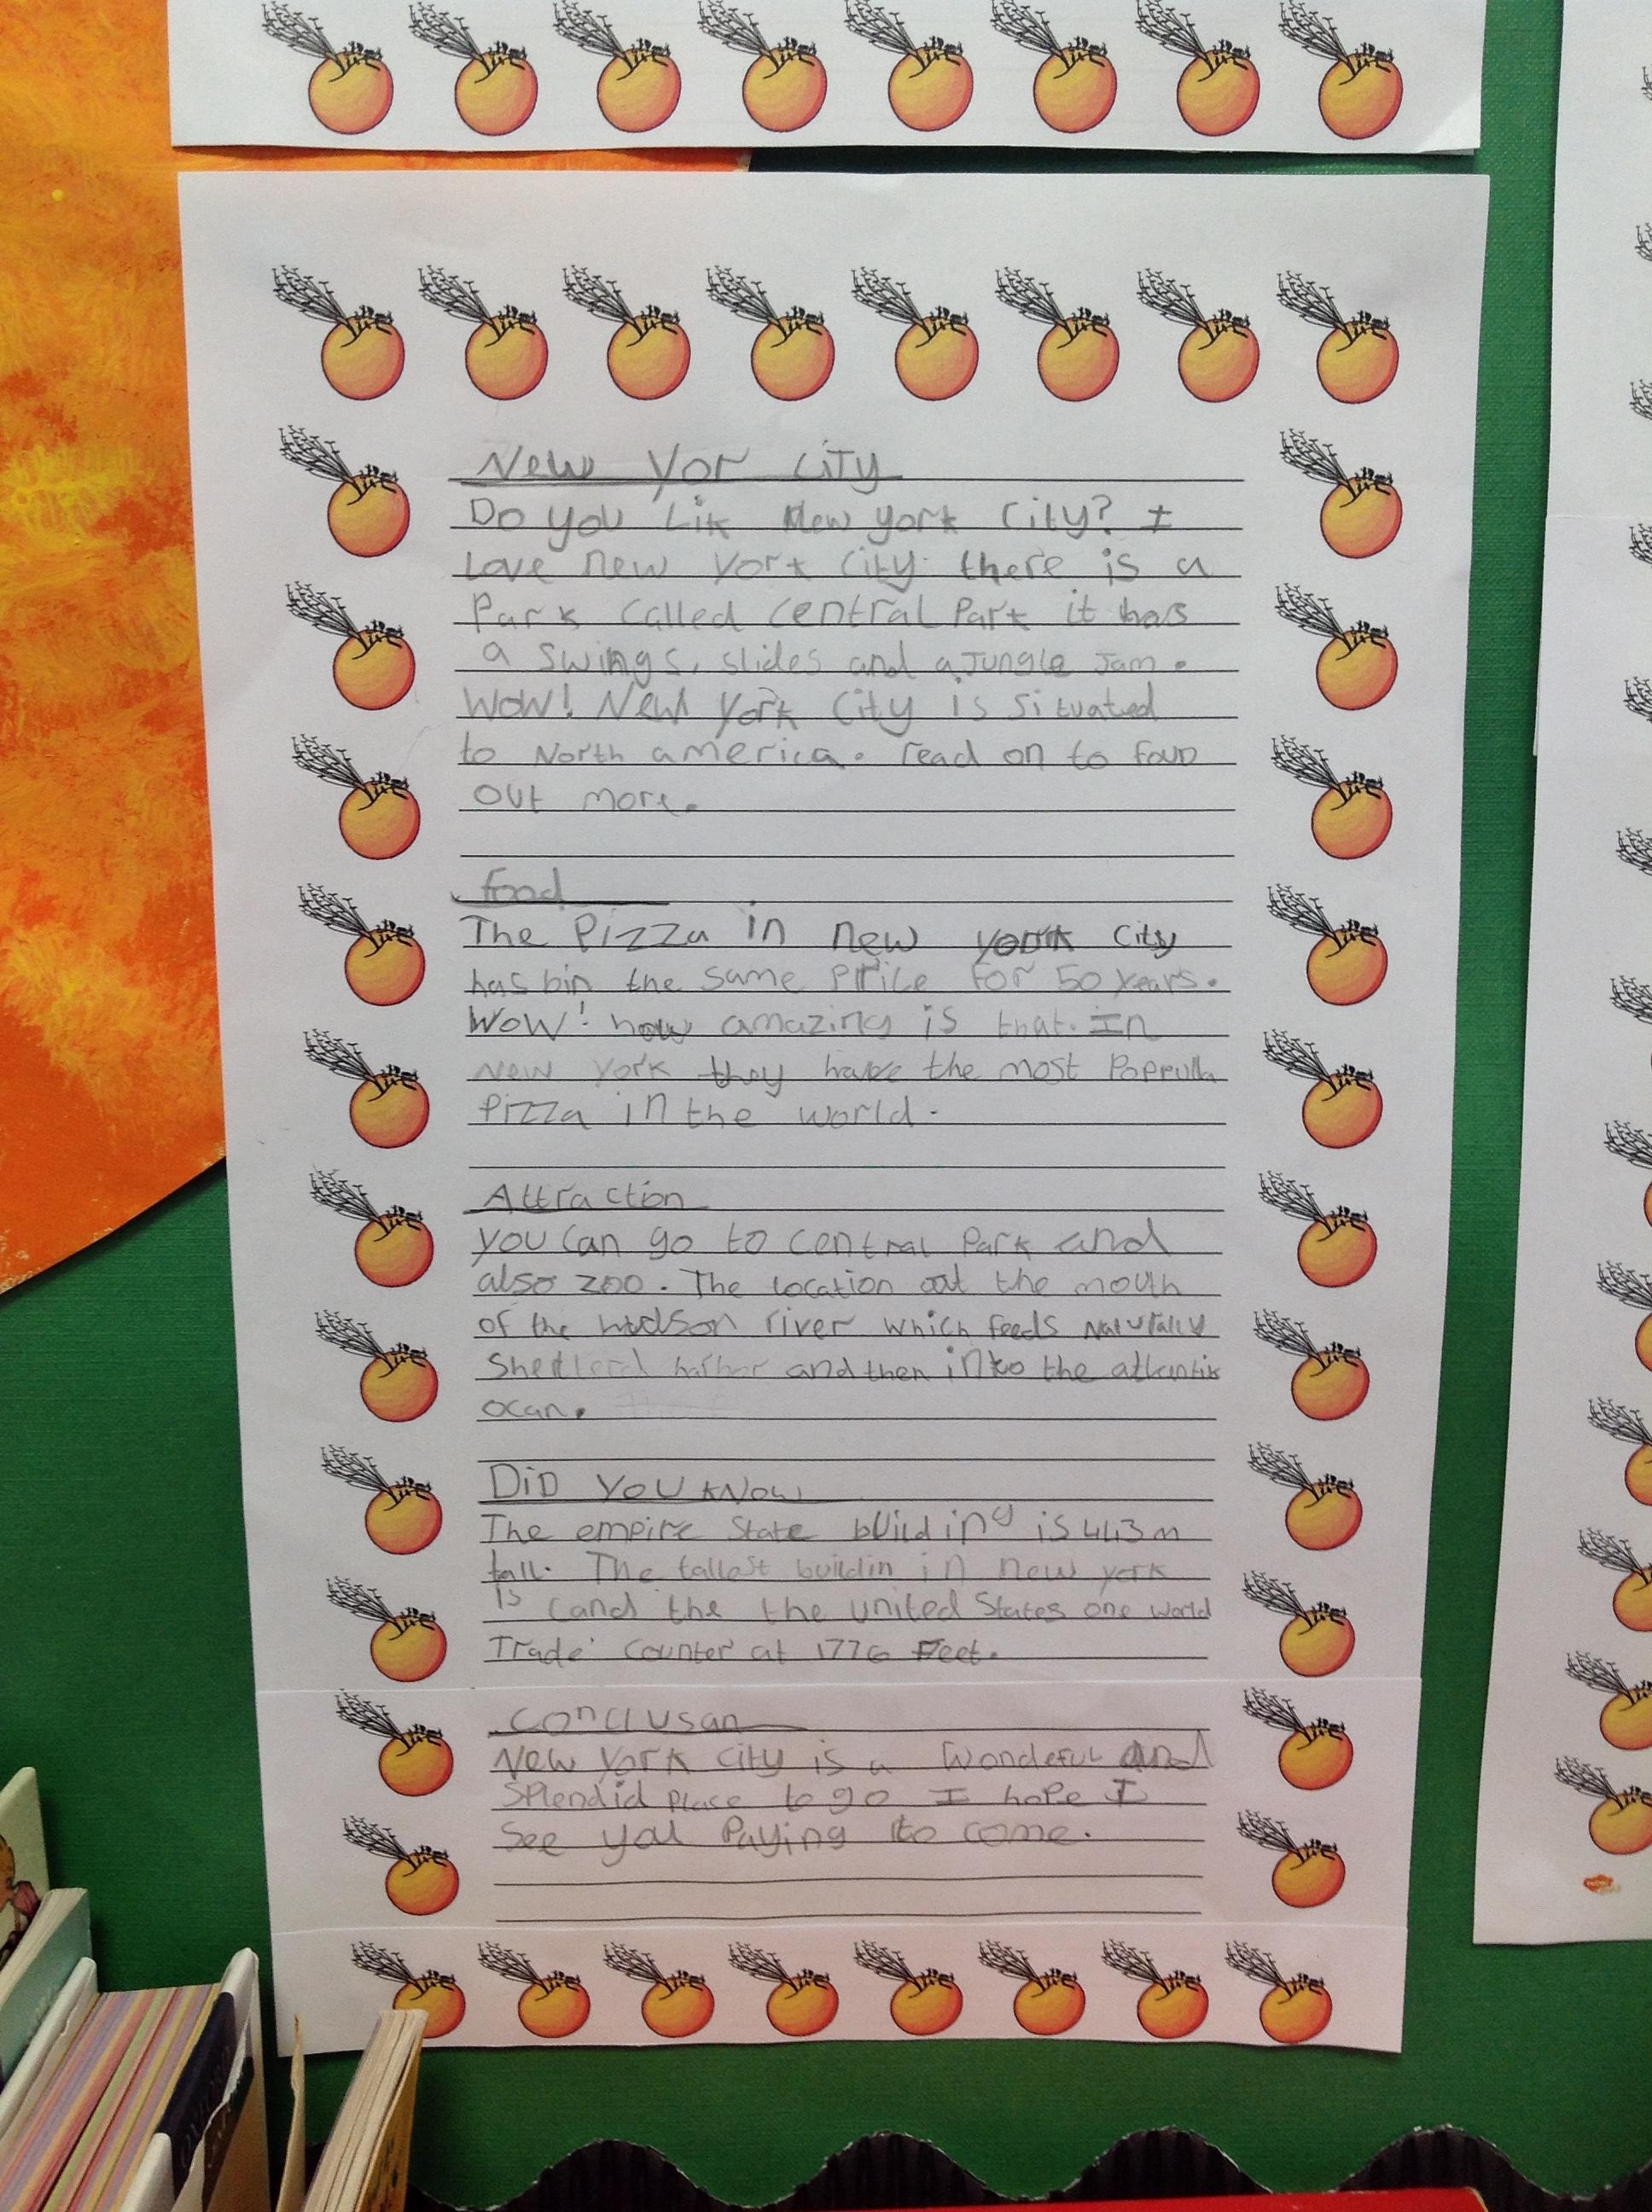 New Yor City
Do you Lik New york City? I
Love new York City. there is a
Park called central Park it has
a swings, slides and a Jungle Jam.
Wow! New york City is Situated
to North america. read on to foun
out more.
food
The Pizza in new york City
has bin the same Price For 50 years.
Wow! how amazing is that. In
New York they have the most Poppulla
Pizza in the world.
Attraction
you can go to central Park and
also zoo. The location at the mouth
of the hudson river which feeds Naturally
harbor and then into the atlantik
ocan.
Did you know
The empire State building is 443m
tall. The tallest buildin in new york
is (and the the united States one world
Trade counter at 1776 Feet.
Conclusan
New York city is a Wondeful and
Splendid Place to go I hope I
See you Paying to come.